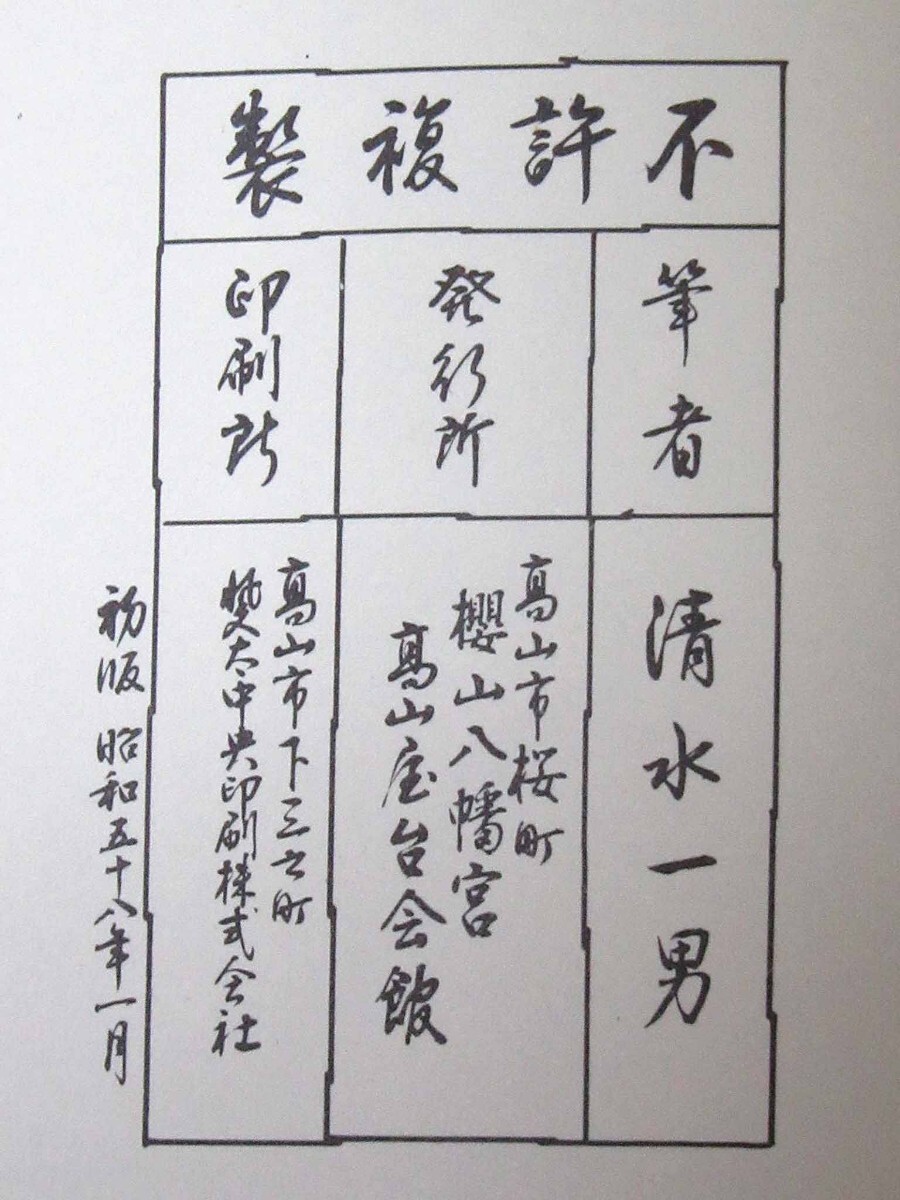 不許複製
筆者
清水一男
発行所
高山市桜町
櫻山八幡宮
高山屋台会館
印刷所
高山市下三之町
斐太中央印刷株式会社
初版 昭和五十八年一月